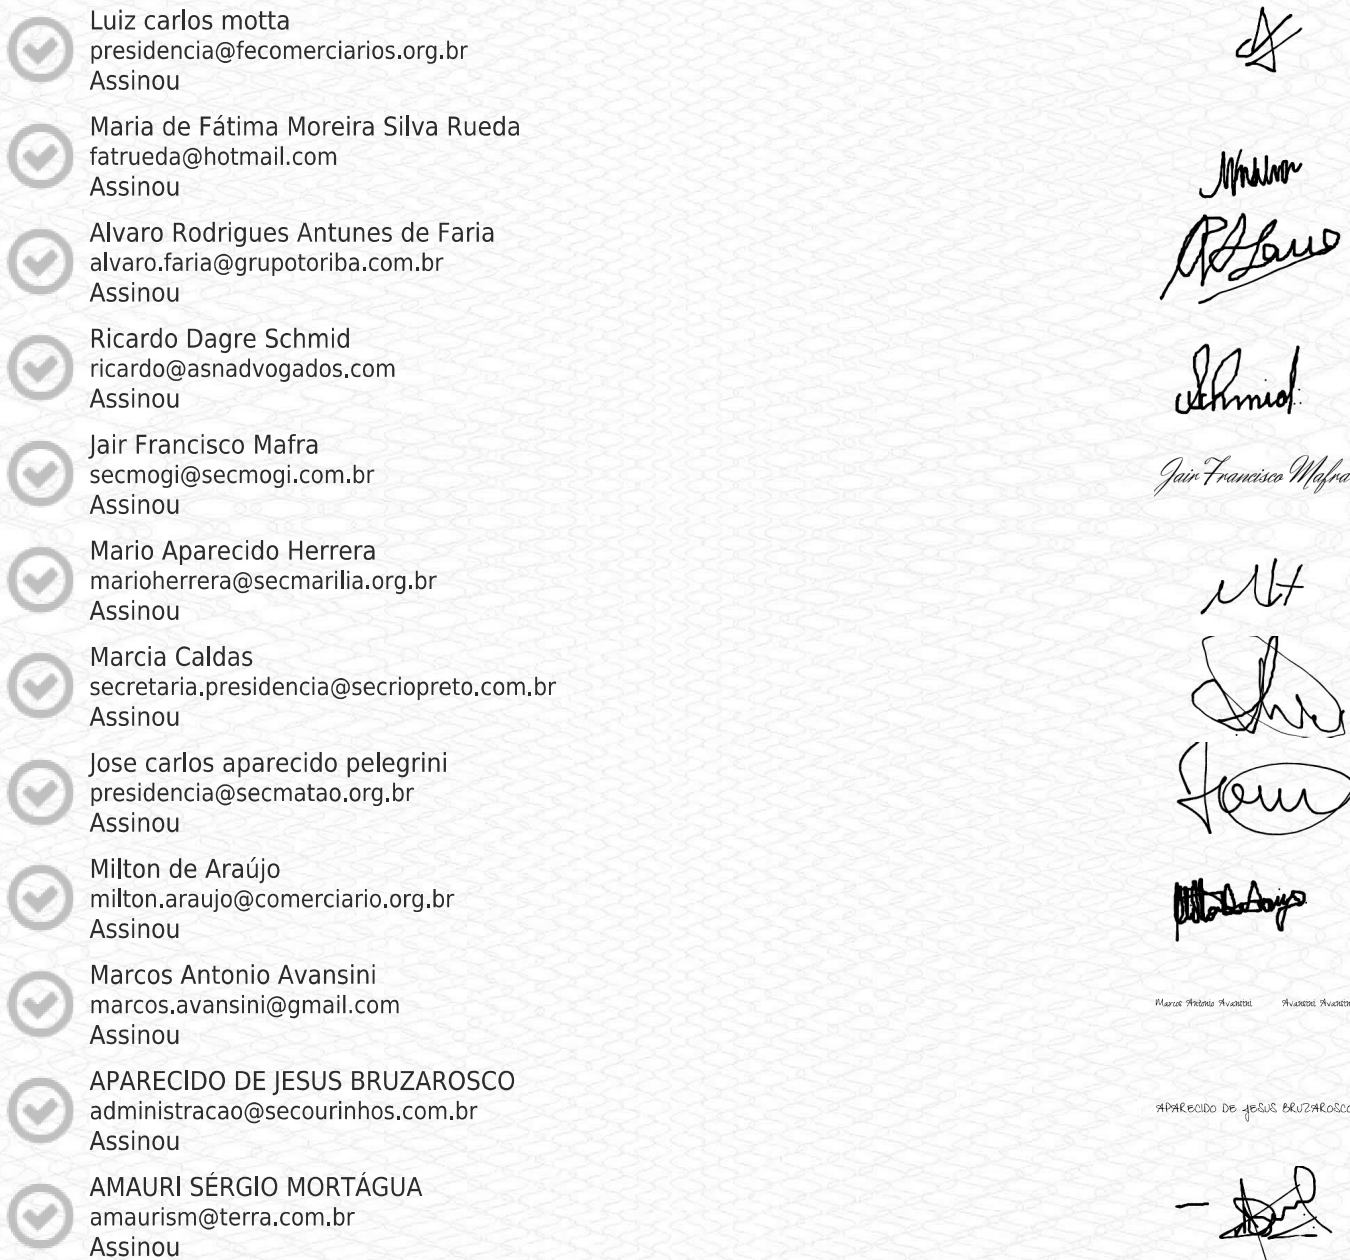 Luiz carlos motta
presidencia@fecomerciarios.org.br
Assinou
Maria de Fátima Moreira Silva Rueda
fatrueda@hotmail.com
Assinou
Alvaro Rodrigues Antunes de Faria
alvaro.faria@grupotoriba.com.br
Assinou
Ricardo Dagre Schmid
ricardo@asnadvogados.com
Assinou
Schmid
Jair Francisco Mafra
secmogi@secmogi.com.br
Assinou
Jair Francisco Mafra
Mario Aparecido Herrera
marioherrera@secmarilia.org.br
Assinou
Marcia Caldas
secretaria.presidencia@secriopreto.com.br
Assinou
Jose carlos aparecido pelegrini
presidencia@secmatao.org.br
Assinou
Milton de Araújo
milton.araujo@comerciario.org.br
Assinou
Marcos Antonio Avansini
marcos.avansini@gmail.com
Assinou
Marcos Antonio Avansini Avansini
APARECIDO DE JESUS BRUZAROSCO
administracao@secourinhos.com.br
Assinou
APARECIDO DE JESUS BRUZAROSCO
AMAURI SÉRGIO MORTÁGUA
amaurism@terra.com.br
Assinou